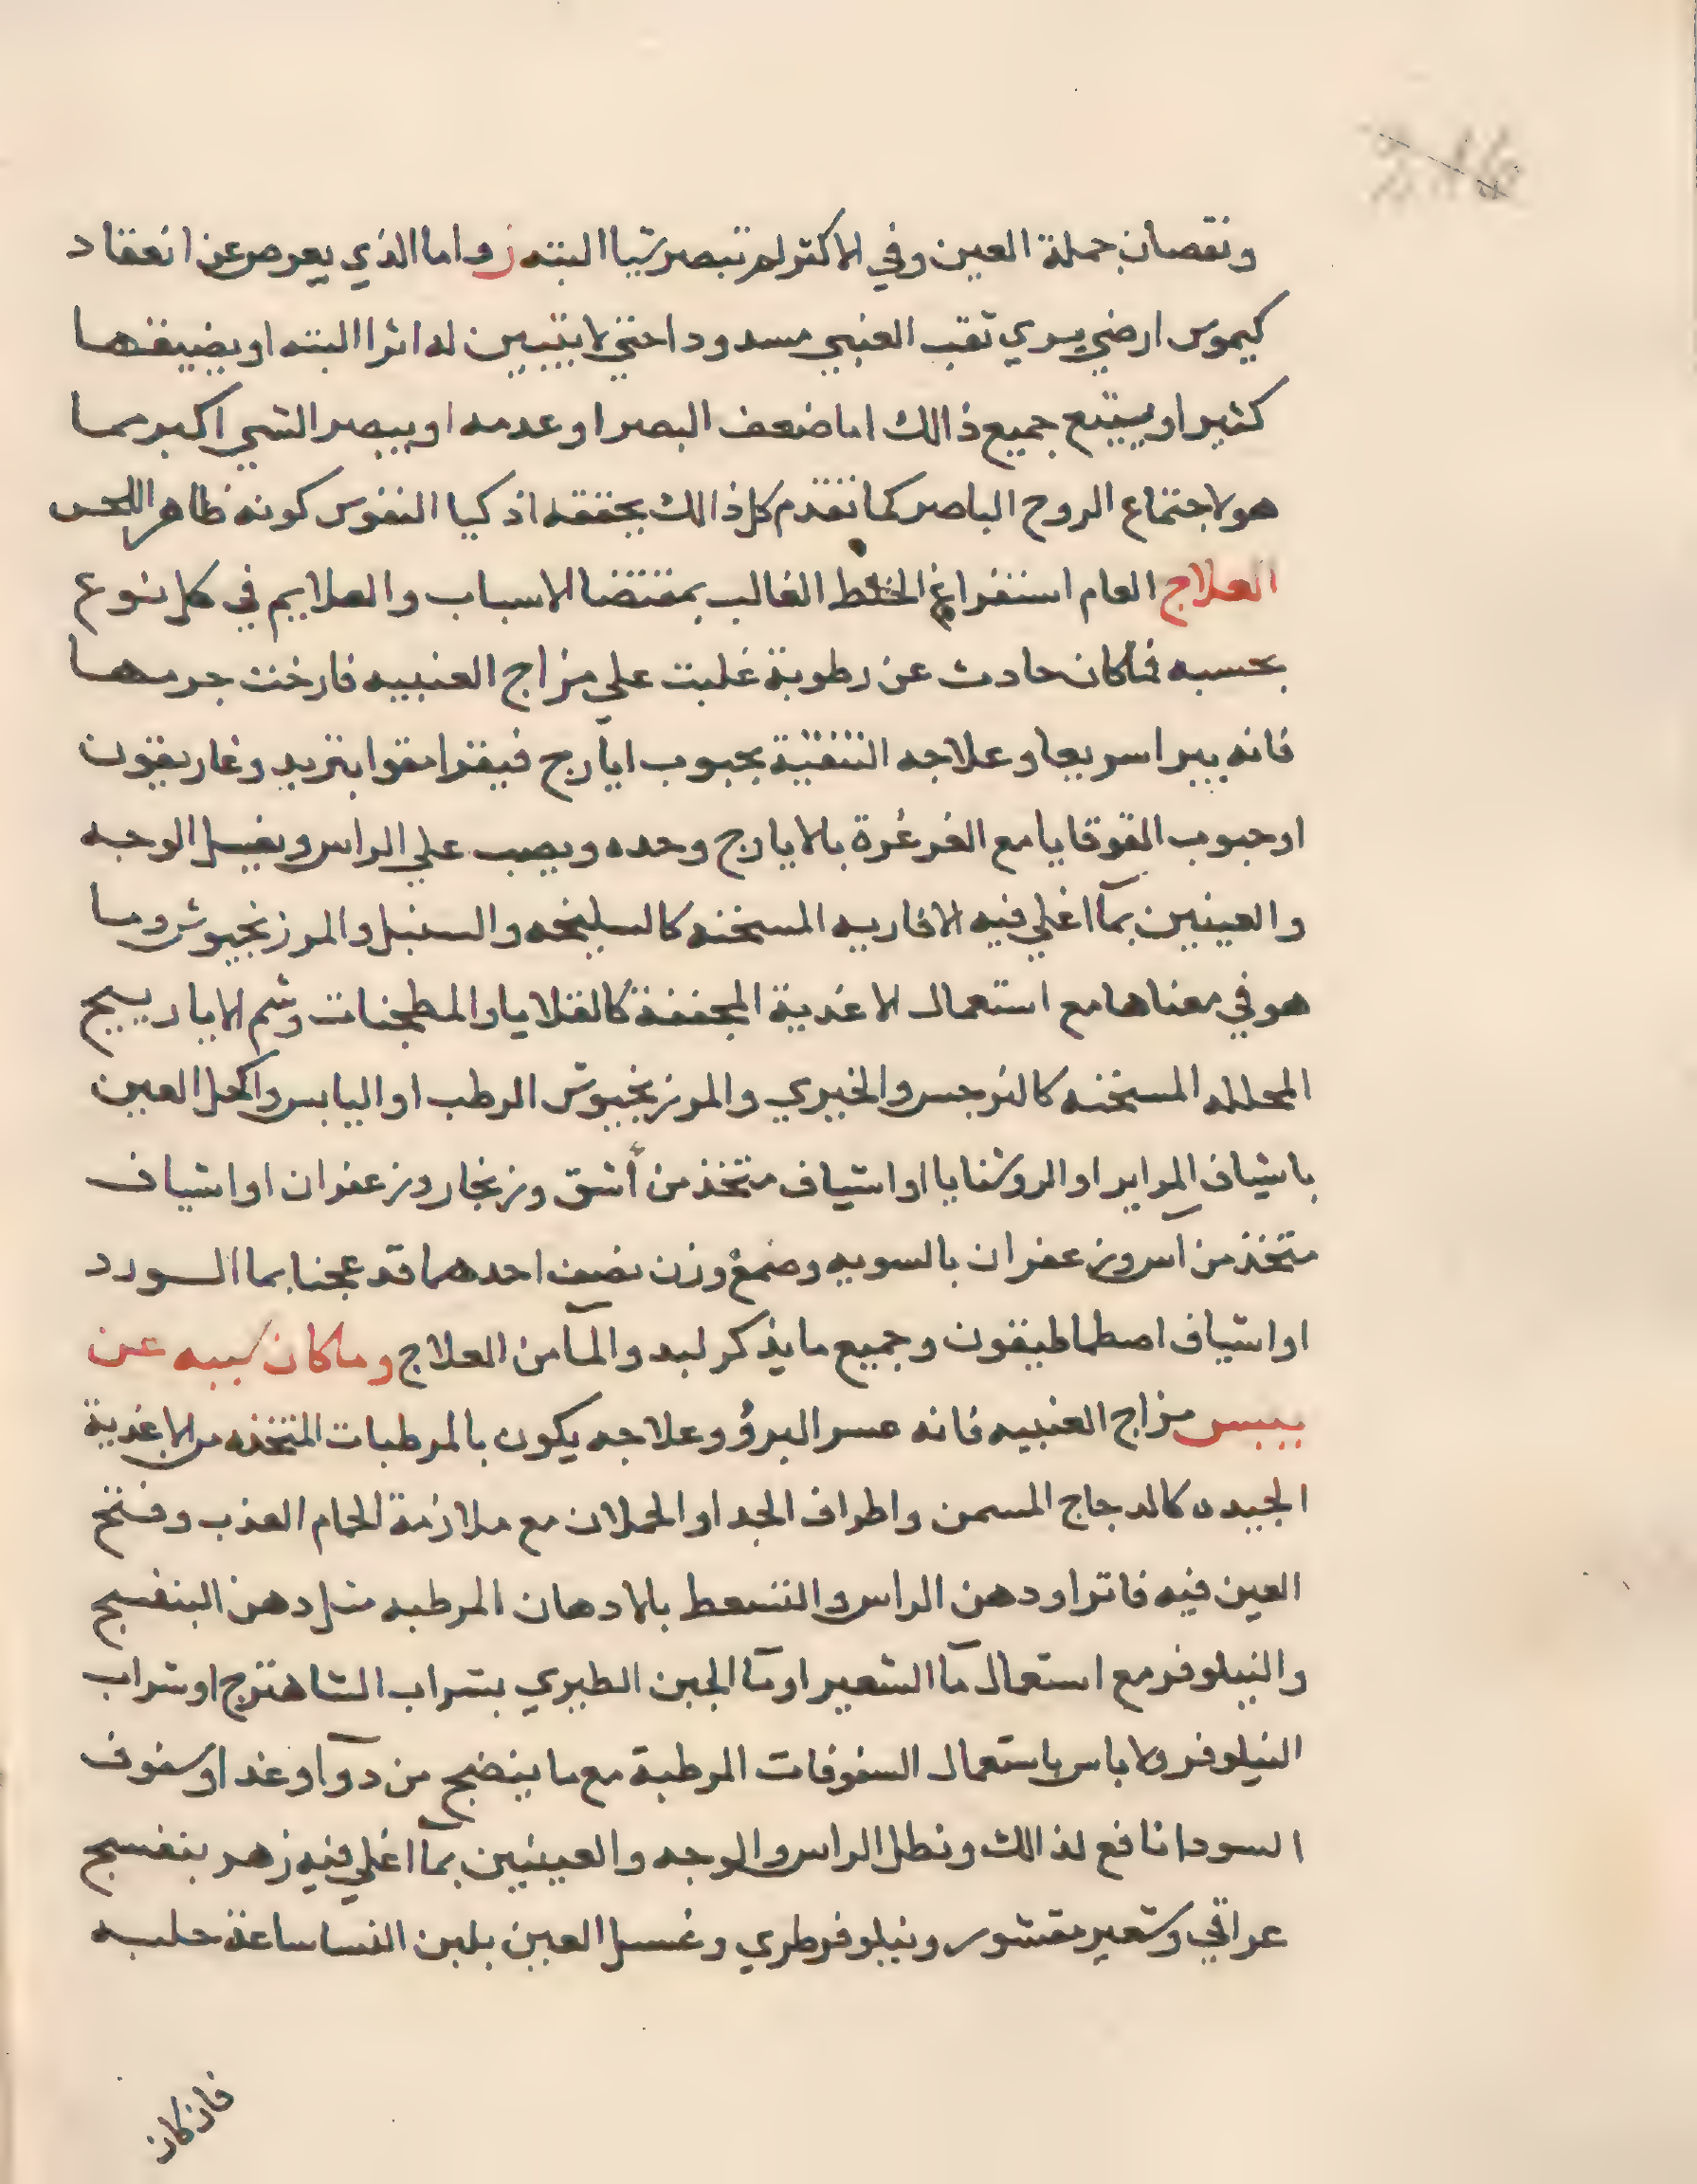 ونقصان جملة العين وفي الاكثر لم تبصر شيا البته ز واما الذي يعرص عن انعقاد
كيموس ارضي يري ثقب العنبي مسدودا حتي لا يتبين له اثرا البته او يضيقها
كثيرا ويتبع جميع ذالك اما ضعف البصر او عدمه او يبصر الشي اكبر مما
هو لاجتماع الروح الباصر كما تقدم كل ذالك يحققه اذكيا النفوس كونه ظاهر اللحس
العلاج العام استفراغ الخلط الغالب بمقتضا الاسباب والعلايم في كل نوع
بحسبه فما كان حادث عن رطوبة غلبت علي مزاج العنبيه فارخت جرمها
فانه يبرا سريعا وعلاجه التنقية بحبوب ايارج فيقرا مقوا بتربد وغاريقون
او حبوب القوقايا مع الغرغرة بالايارج وحده ويصب علي الراس ويغسل الوجه
والعينين بمآ اغلي فيه الافاريه المسخنه كالسليخه والسنبل والمرزنجوش وما
هو في معناها مع استعمال الاغذية المجففة كالقلايا والمطجنات وشم الاياريج
المحلله المسخنه كالنرجس والخيري والمرزنجوش الرطب او اليابس واكحل العين
باشياف المراير او الروشنايا او اشياف متخذ من أشق وزنجار وزعفران او اشياف
متخذ من آس وزعفران بالسويه وضمغ وزن نصف احدهما قد عجنا بما الورد
او اشياف اصطماطيقون وجميع ما يذكر لبدو المآ من العلاج وما كان سببه عن
يبس مزاج العنبيه فانه عسر البرؤ وعلاجه يكون بالمرطبات المتخذه من الاغذية
الجيده كالدجاج المسمن واطراف الجدا والحملان مع ملازمة الحمام العذب وفتح
العين فيه فاترا ودهن الراس والتسعط بالادهان المرطبه مثل دهن البنفسج
والنيلوفر مع استعمال مآ الشعير او مآ الجبن الطيري بشراب الشاهترج او شراب
النيلوفر ولا باس باستعمال السفوفات المرطبة مع ما ينضج من دوآ او غدا وسفوف
السودا نافع لذالك ونطل الراس والوجه والعينين بمآ اغلي فيه زهر بنفسج
عراقي وشعير مقشور ونيلوفر طري وغسل العين بلبن النسا ساعة حلبه
فان كان